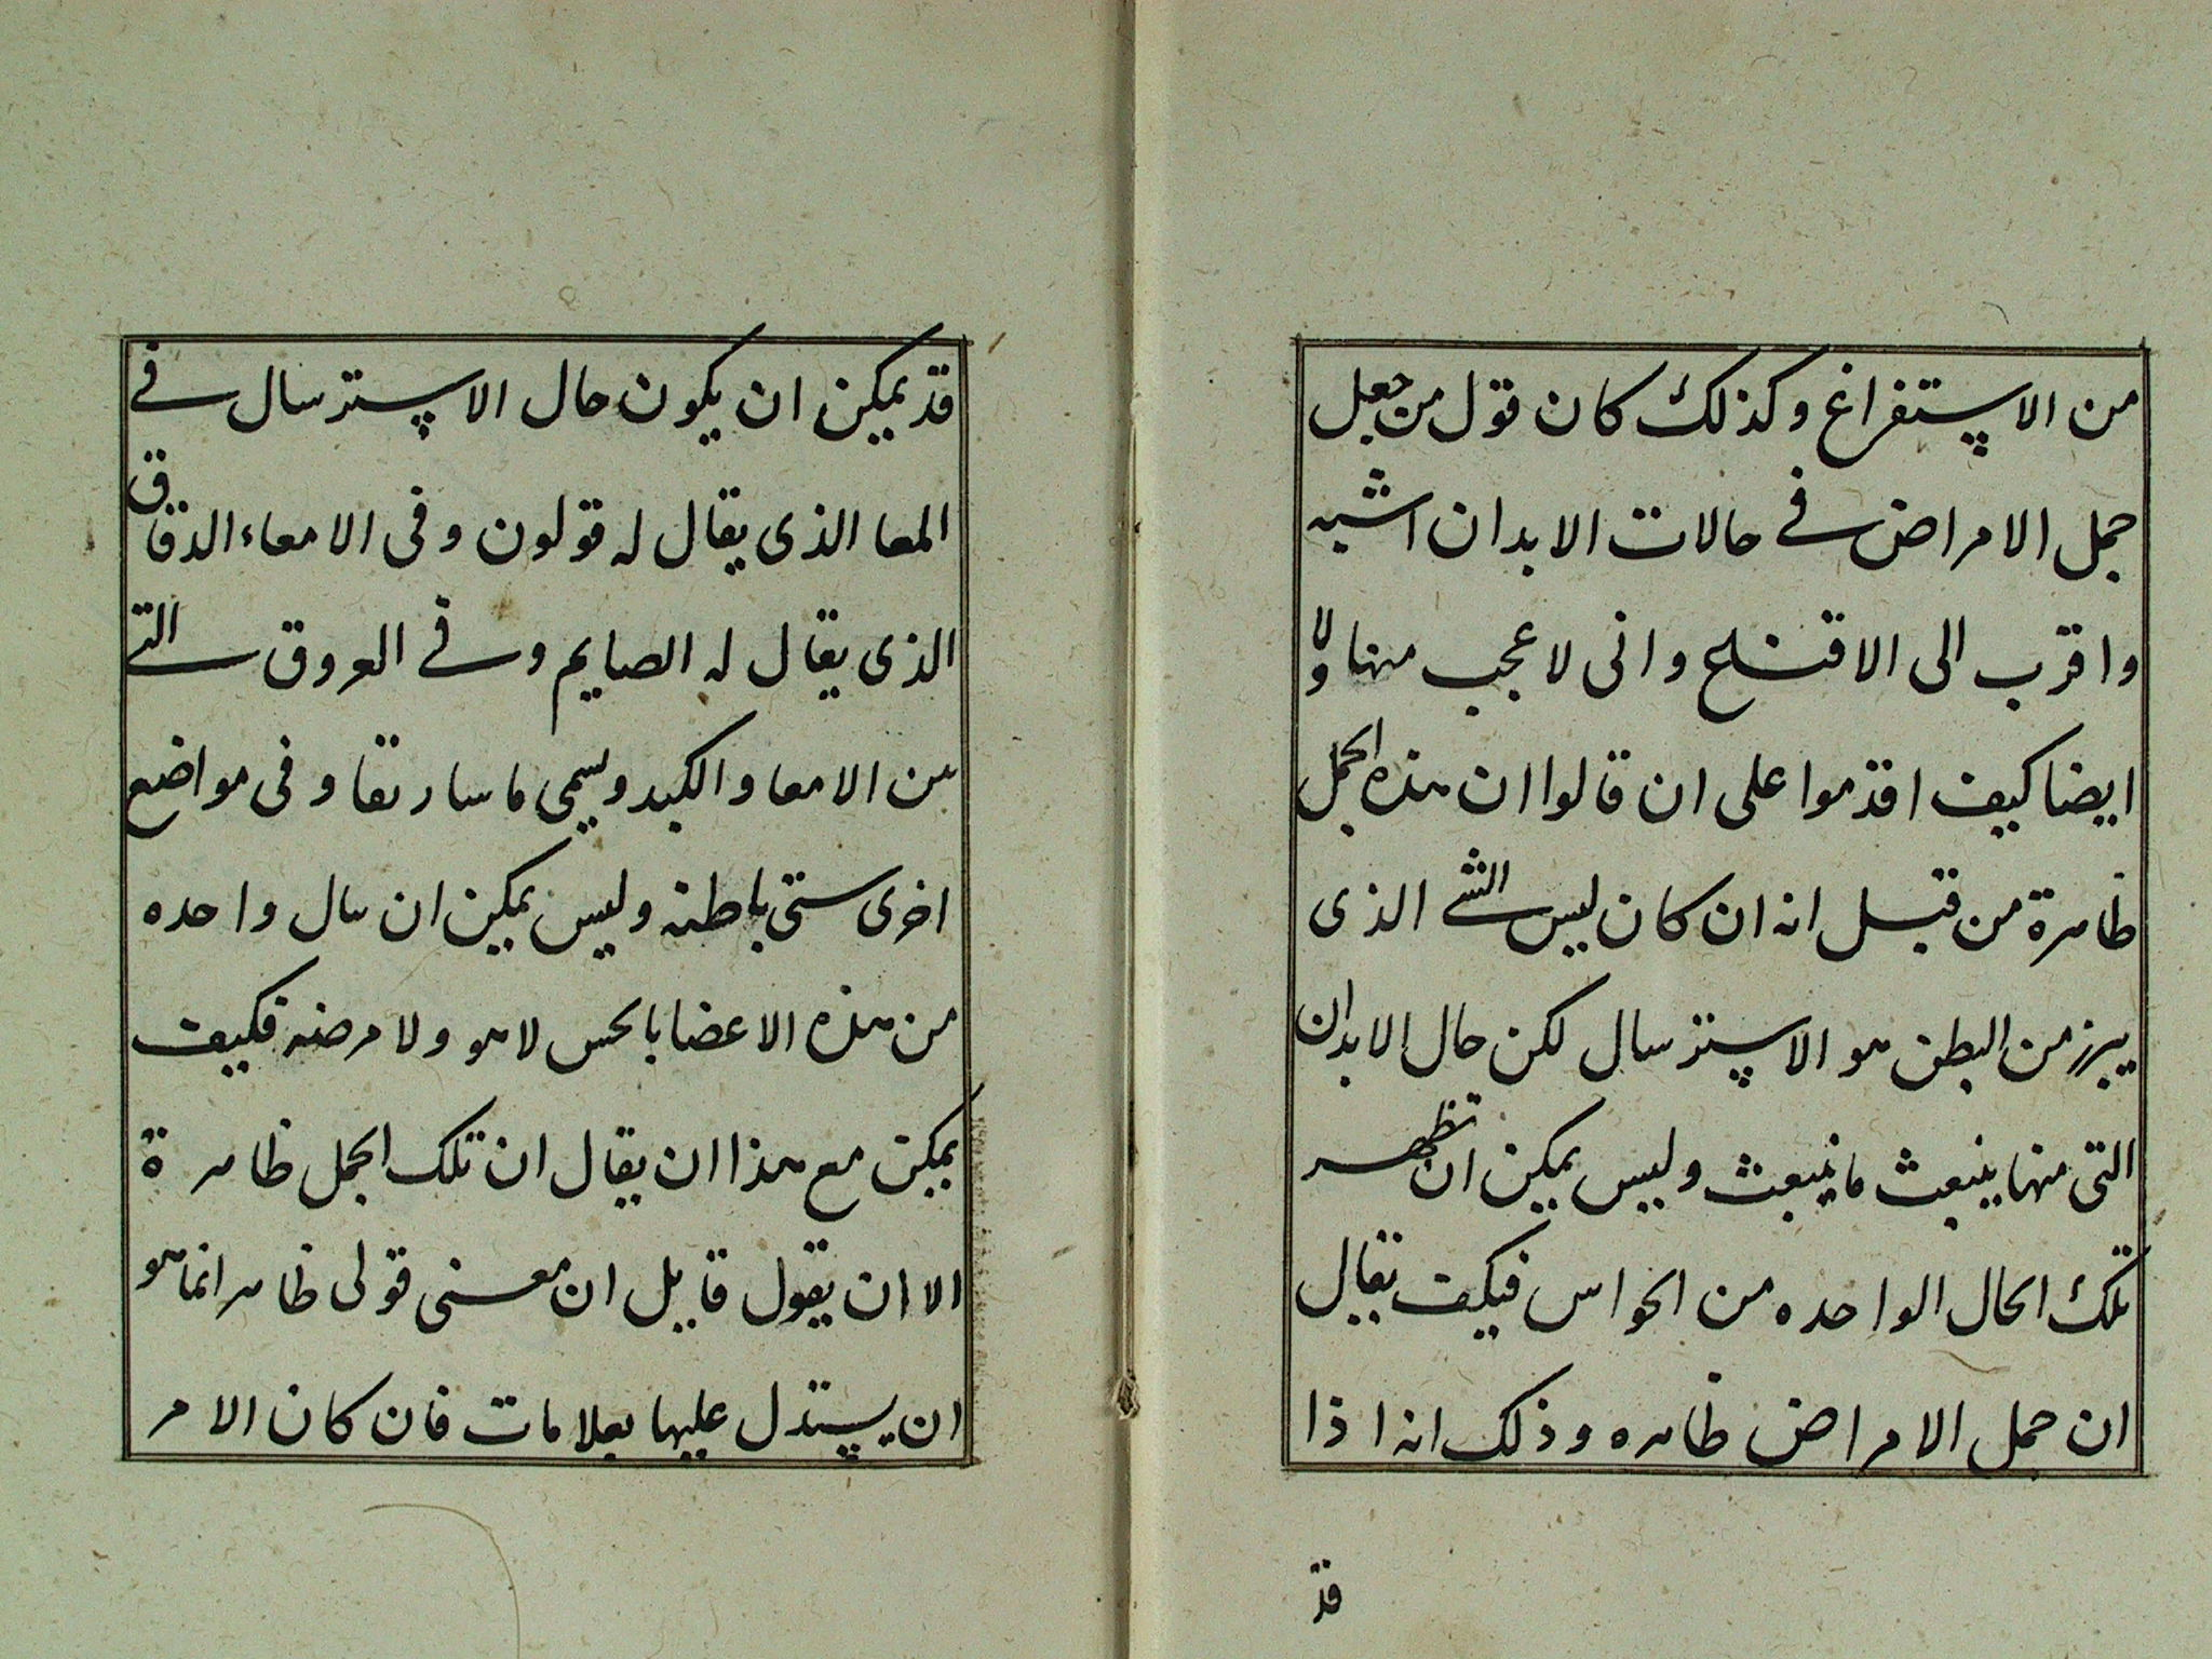 من الاستفراغ وكذلك كان قول من جعل
جمل الامراض في حالات الابدان اشبه
واقرب الى الاقتـنـاع وانى لاعجب منها ولا
ايضا كيف اقدموا على ان قالوا ان هذه الجمل
ظاهرة من قبل انه ان كان ليس الشى الذى
يبرز من البطن هو الاسترسال لكن حال الابدان
التى منها ينبعث ما ينبعث وليس يمكن ان تظهر
تلك الحال الواحده من الحواس فكيف يقال
ان جمل الامراض ظاهره وذلك انه اذا
قد
قد يمكن ان يكون حال الاسترسال في
المعا الذى يقال له قولون وفى الامعاء الدقاق
الذى يقال له الصايم وفي العروق التي
بين الامعا والكبد ويسمى ماساريقا وفى مواضع
اخرى ستى باطنه وليس يمكن ان ينال واحده
من هذه الاعضا بالحس لا هو ولا مرضه فكيف
يمكن مع هذا ان يقال ان تلك الجمل ظاهرة
الا ان يقول قايل ان معنى قولى ظاهر انما هو
ان يستدل عليها بعلامات فان كان الامر